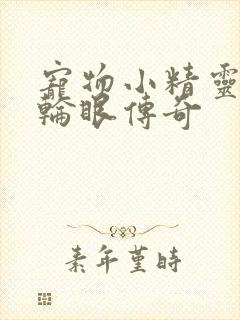 寵物小精靈
輪眼傳奇
素年堇時